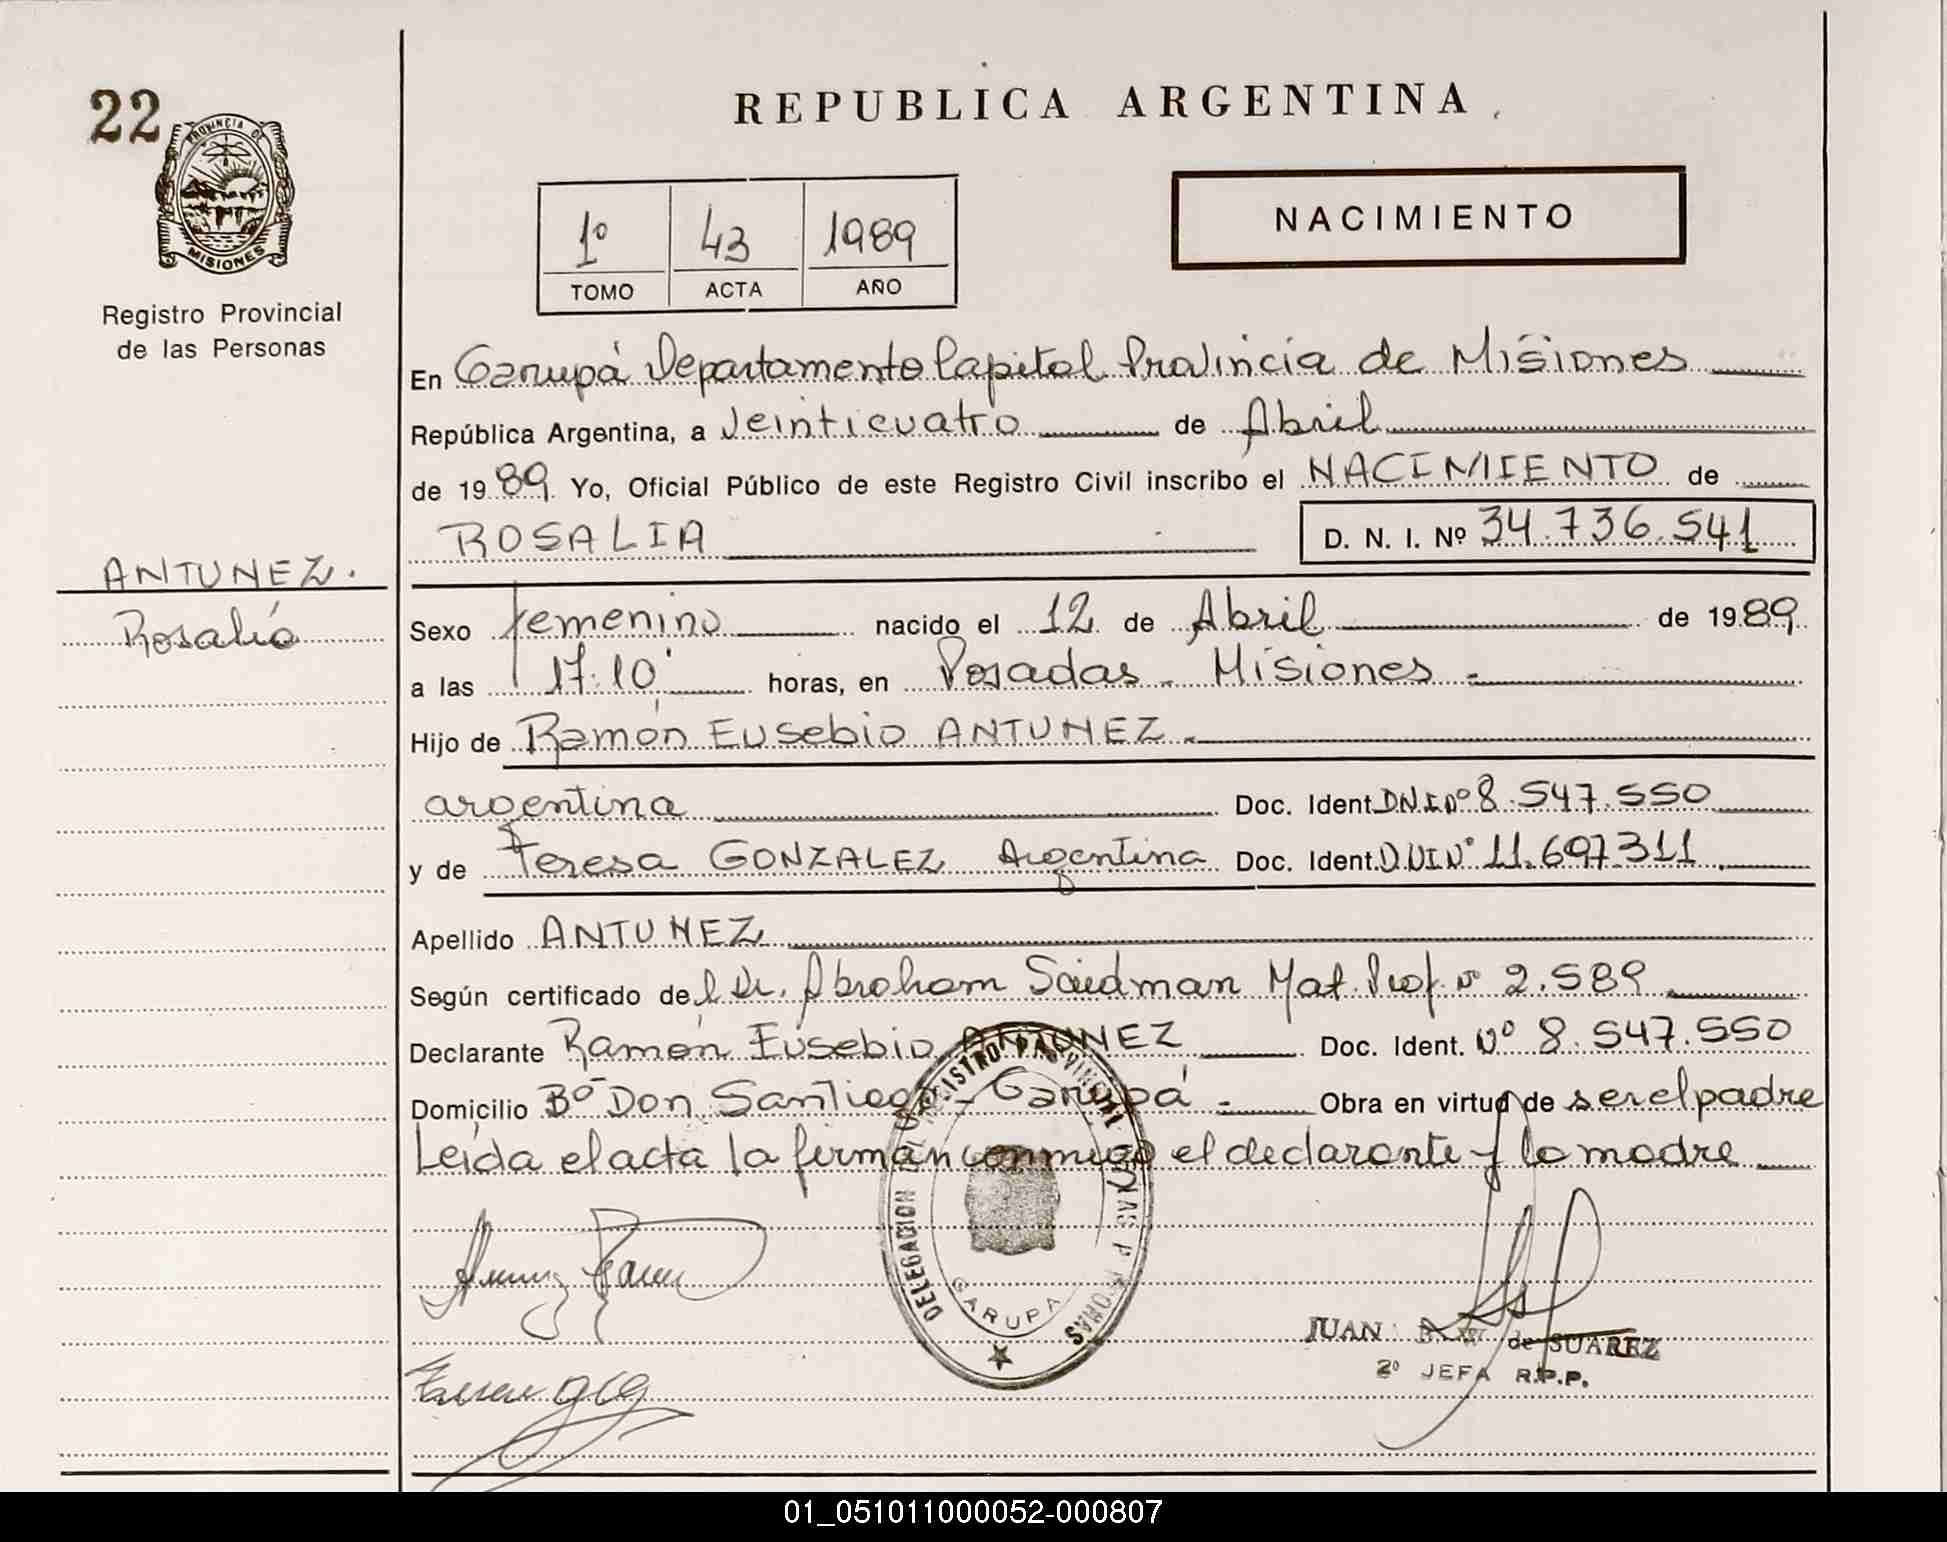 22
PROVINCIA DE
MISIONES
Registro Provincial
de las Personas
ANTUNEZ.
Rosalía
REPUBLICA ARGENTINA
1º 43 1989
TOMO ACTA AÑO
NACIMIENTO
En Garupá Departamento Capital Provincia de Misiones
República Argentina, a veinticuatro de Abril
de 1989 Yo, Oficial Público de este Registro Civil inscribo el NACIMIENTO de
ROSALIA D. N. I. Nº 34.736.541
Sexo femenino nacido el 12 de Abril de 1989
a las 17.10' horas, en Posadas - Misiones -
Hijo de Ramón Eusebio ANTUNEZ -
argentina Doc. Ident. D.N.I. nº 8.547.550
y de Teresa GONZALEZ Argentina Doc. Ident. D.N.I Nº 11.697.311
Apellido ANTUNEZ
Según certificado del Dr. Abraham Saidman Mat. Prof. nº 2.589
Declarante Ramón Eusebio ANTUNEZ Doc. Ident. Nº 8.547.550
Domicilio Bº Don Santiago - Garupá - Obra en virtud de ser el padre
Leída el acta la firman conmigo el declarante y la madre
DELEGACION DEL REGISTRO PROVINCIAL DE LAS PERSONAS
GARUPA
JUAN de SUAREZ
2º JEFA R.P.P.
01_051011000052-000807